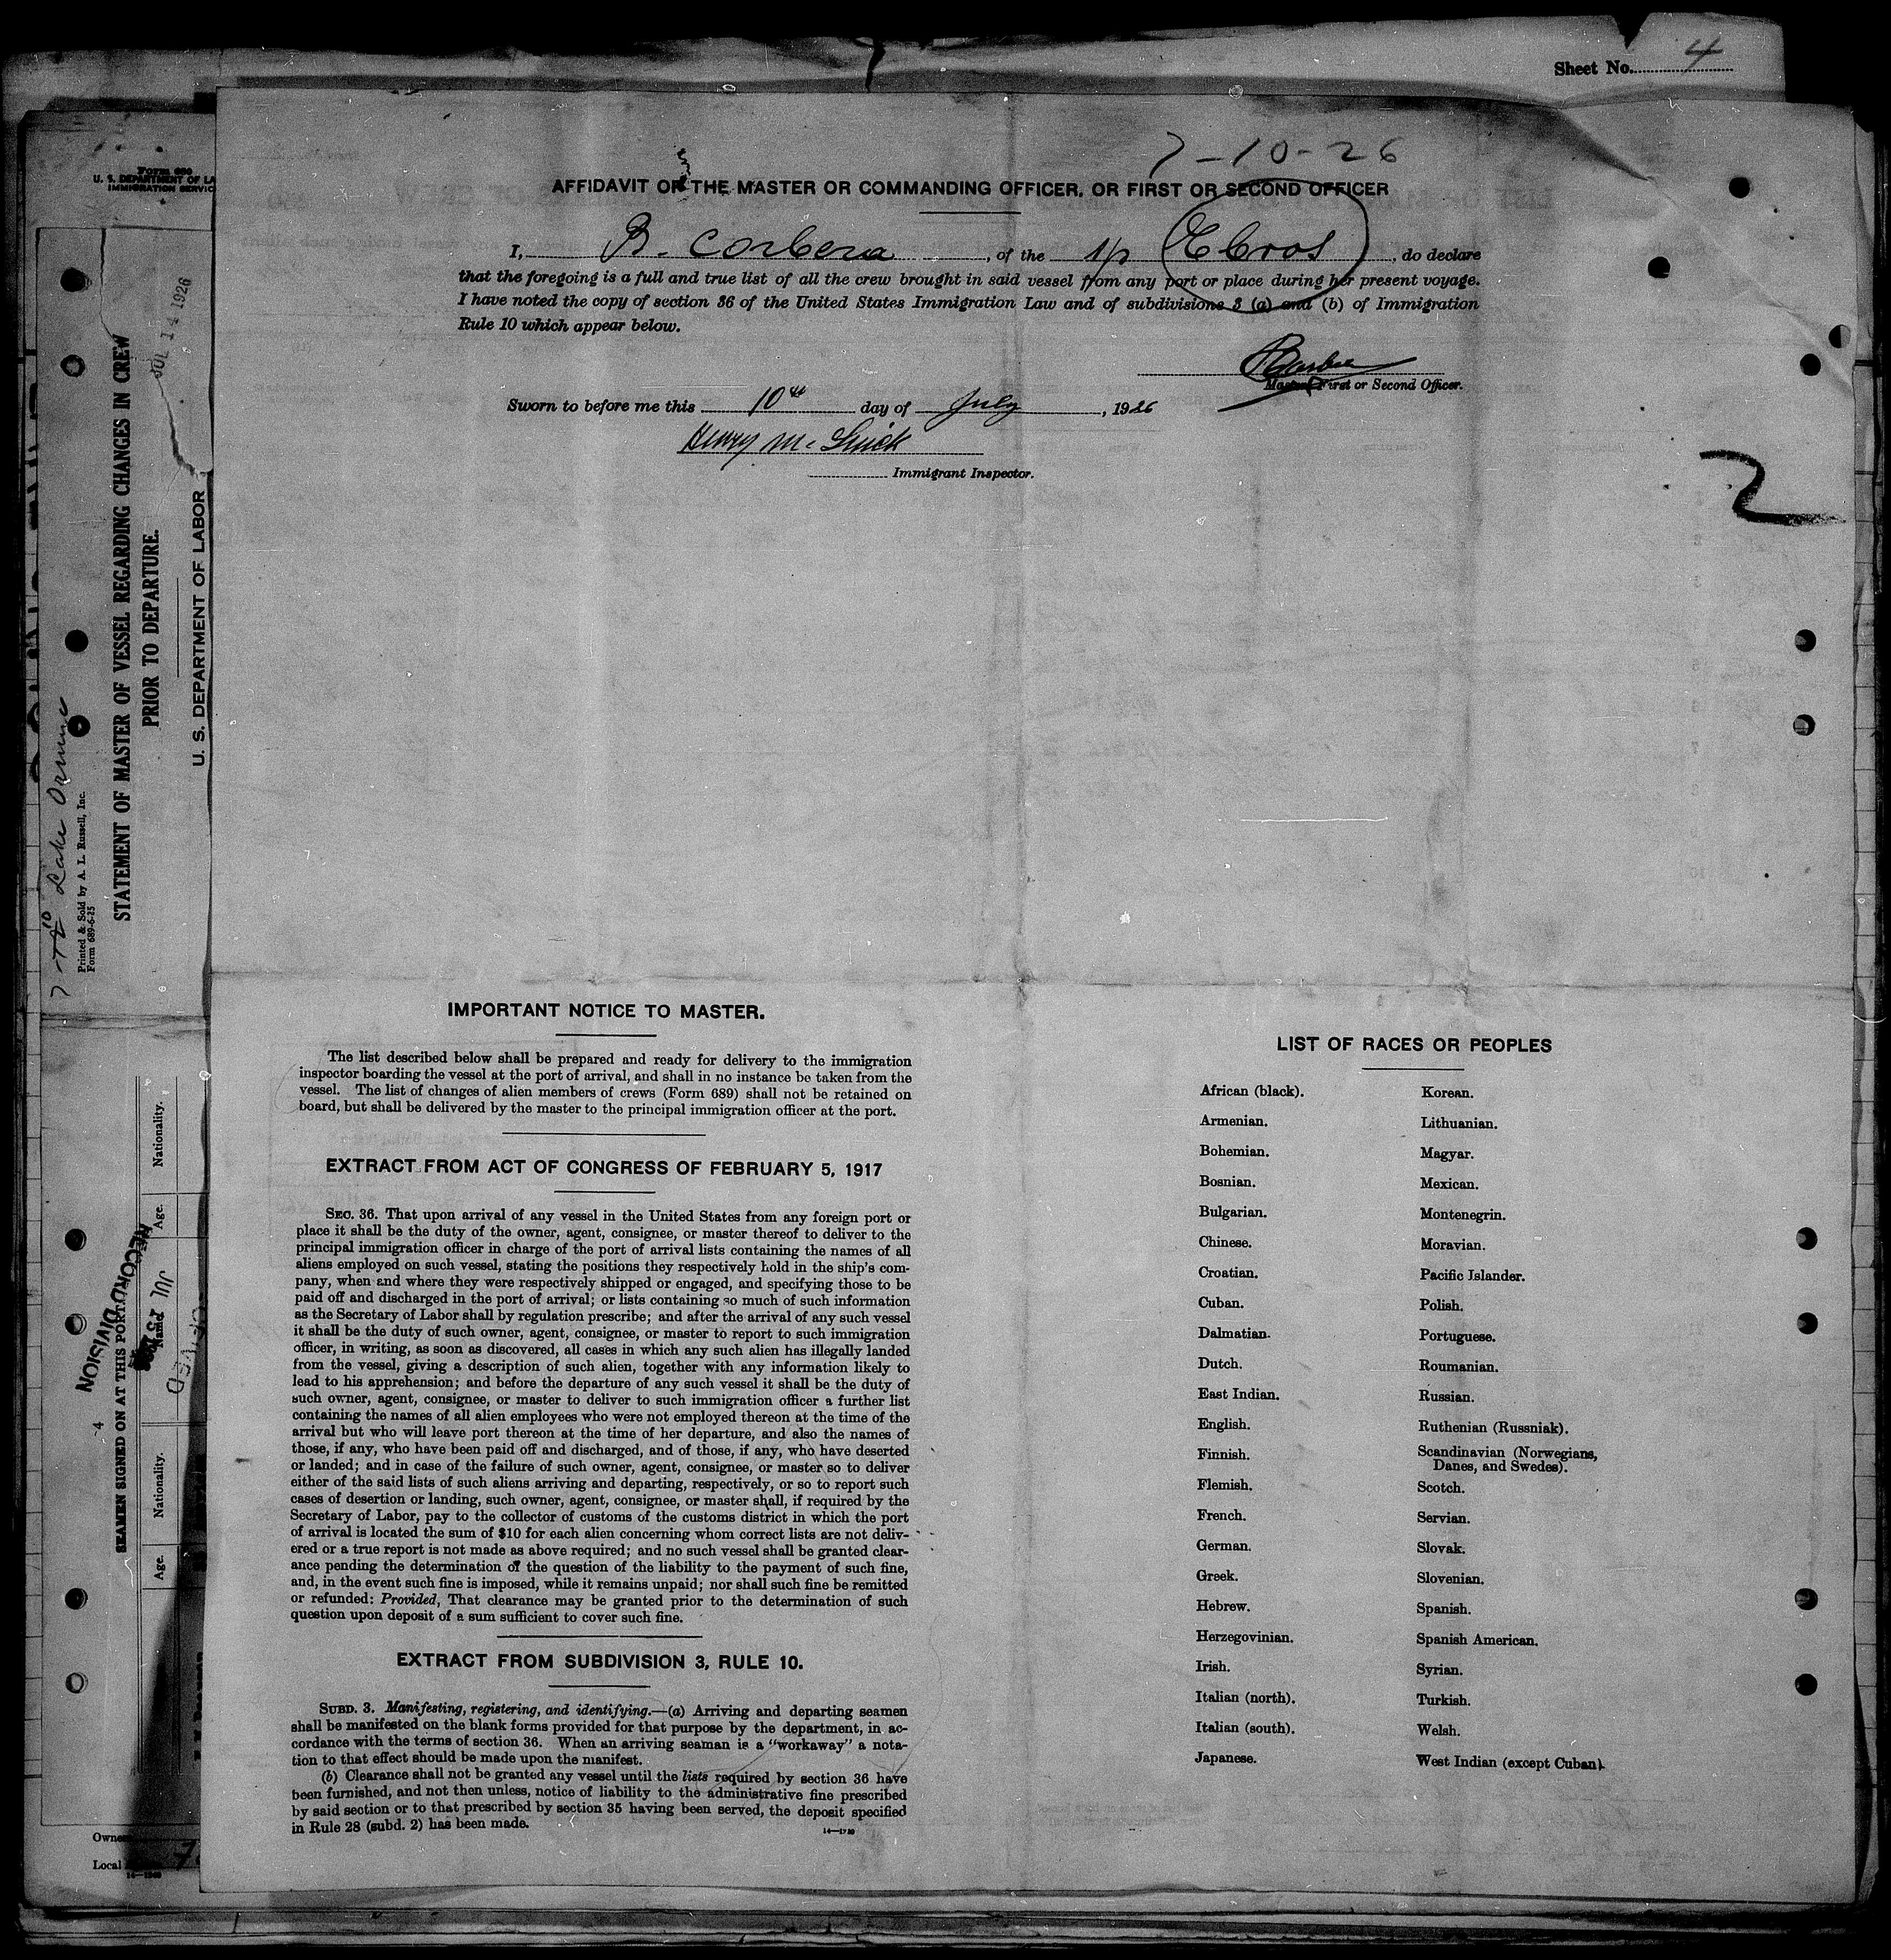 Sheet No. 4
7-10-26
AFFIDAVIT OF THE MASTER OR COMMANDING OFFICER, OR FIRST OR SECOND OFFICER
I, B. Corbera, of the s/s Ebros, do declare
that the foregoing is a full and true list of all the crew brought in said vessel from any port or place during her present voyage.
I have noted the copy of section 36 of the United States Immigration Law and of subdivisions 3 (a) and (b) of Immigration
Rule 10 which appear below.
Master, First or Second Officer.
Sworn to before me this 10th day of July, 1926
Henry Mc
Immigrant Inspector.
2
IMPORTANT NOTICE TO MASTER.
The list described below shall be prepared and ready for delivery to the immigration
inspector boarding the vessel at the port of arrival, and shall in no instance be taken from the
vessel. The list of changes of alien members of crews (Form 689) shall not be retained on
board, but shall be delivered by the master to the principal immigration officer at the port.
EXTRACT FROM ACT OF CONGRESS OF FEBRUARY 5, 1917
SEC. 36. That upon arrival of any vessel in the United States from any foreign port or
place it shall be the duty of the owner, agent, consignee, or master thereof to deliver to the
principal immigration officer in charge of the port of arrival lists containing the names of all
aliens employed on such vessel, stating the positions they respectively hold in the ship's com-
pany, when and where they were respectively shipped or engaged, and specifying those to be
paid off and discharged in the port of arrival; or lists containing so much of such information
as the Secretary of Labor shall by regulation prescribe; and after the arrival of any such vessel
it shall be the duty of such owner, agent, consignee, or master to report to such immigration
officer, in writing, as soon as discovered, all cases in which any such alien has illegally landed
from the vessel, giving a description of such alien, together with any information likely to
lead to his apprehension; and before the departure of any such vessel it shall be the duty of
such owner, agent, consignee, or master to deliver to such immigration officer a further list
containing the names of all alien employees who were not employed thereon at the time of the
arrival but who will leave port thereon at the time of her departure, and also the names of
those, if any, who have been paid off and discharged, and of those, if any, who have deserted
or landed; and in case of the failure of such owner, agent, consignee, or master so to deliver
either of the said lists of such aliens arriving and departing, respectively, or so to report such
cases of desertion or landing, such owner, agent, consignee, or master shall, if required by the
Secretary of Labor, pay to the collector of customs of the customs district in which the port
of arrival is located the sum of $10 for each alien concerning whom correct lists are not deliv-
ered or a true report is not made as above required; and no such vessel shall be granted clear-
ance pending the determination of the question of the liability to the payment of such fine,
and, in the event such fine is imposed, while it remains unpaid; nor shall such fine be remitted
or refunded: Provided, That clearance may be granted prior to the determination of such
question upon deposit of a sum sufficient to cover such fine.
EXTRACT FROM SUBDIVISION 3, RULE 10.
SUBD. 3. Manifesting, registering, and identifying.—(a) Arriving and departing seamen
shall be manifested on the blank forms provided for that purpose by the department, in ac-
cordance with the terms of section 36. When an arriving seaman is a "workaway" a nota-
tion to that effect should be made upon the manifest.
(b) Clearance shall not be granted any vessel until the lists required by section 36 have
been furnished, and not then unless, notice of liability to the administrative fine prescribed
by said section or to that prescribed by section 35 having been served, the deposit specified
in Rule 28 (subd. 2) has been made.
LIST OF RACES OR PEOPLES
African (black).
Armenian.
Bohemian.
Bosnian.
Bulgarian.
Chinese.
Croatian.
Cuban.
Dalmatian.
Dutch.
East Indian.
English.
Finnish.
Flemish.
French.
German.
Greek.
Hebrew.
Herzegovinian.
Irish.
Italian (north).
Italian (south).
Japanese.
Korean.
Lithuanian.
Magyar.
Mexican.
Montenegrin.
Moravian.
Pacific Islander.
Polish.
Portuguese.
Roumanian.
Russian.
Ruthenian (Russniak).
Scandinavian (Norwegians,
Danes, and Swedes).
Scotch.
Servian.
Slovak.
Slovenian.
Spanish.
Spanish American.
Syrian.
Turkish.
Welsh.
West Indian (except Cuban).
U. S. DEPARTMENT OF LA
IMMIGRATION SERVIC
Lake
Printed & Sold by A. L. Russell, Inc.
Form 689-6-25
STATEMENT OF MASTER OF VESSEL REGARDING CHANGES IN CREW
PRIOR TO DEPARTURE.
JUL 14 1926
U. S. DEPARTMENT OF LABOR
RECORD DIVISION
SEAMEN SIGNED ON AT THIS PORT
Nationality.
Age.
Name
Nationality.
Age.
JUL
Owne
Local